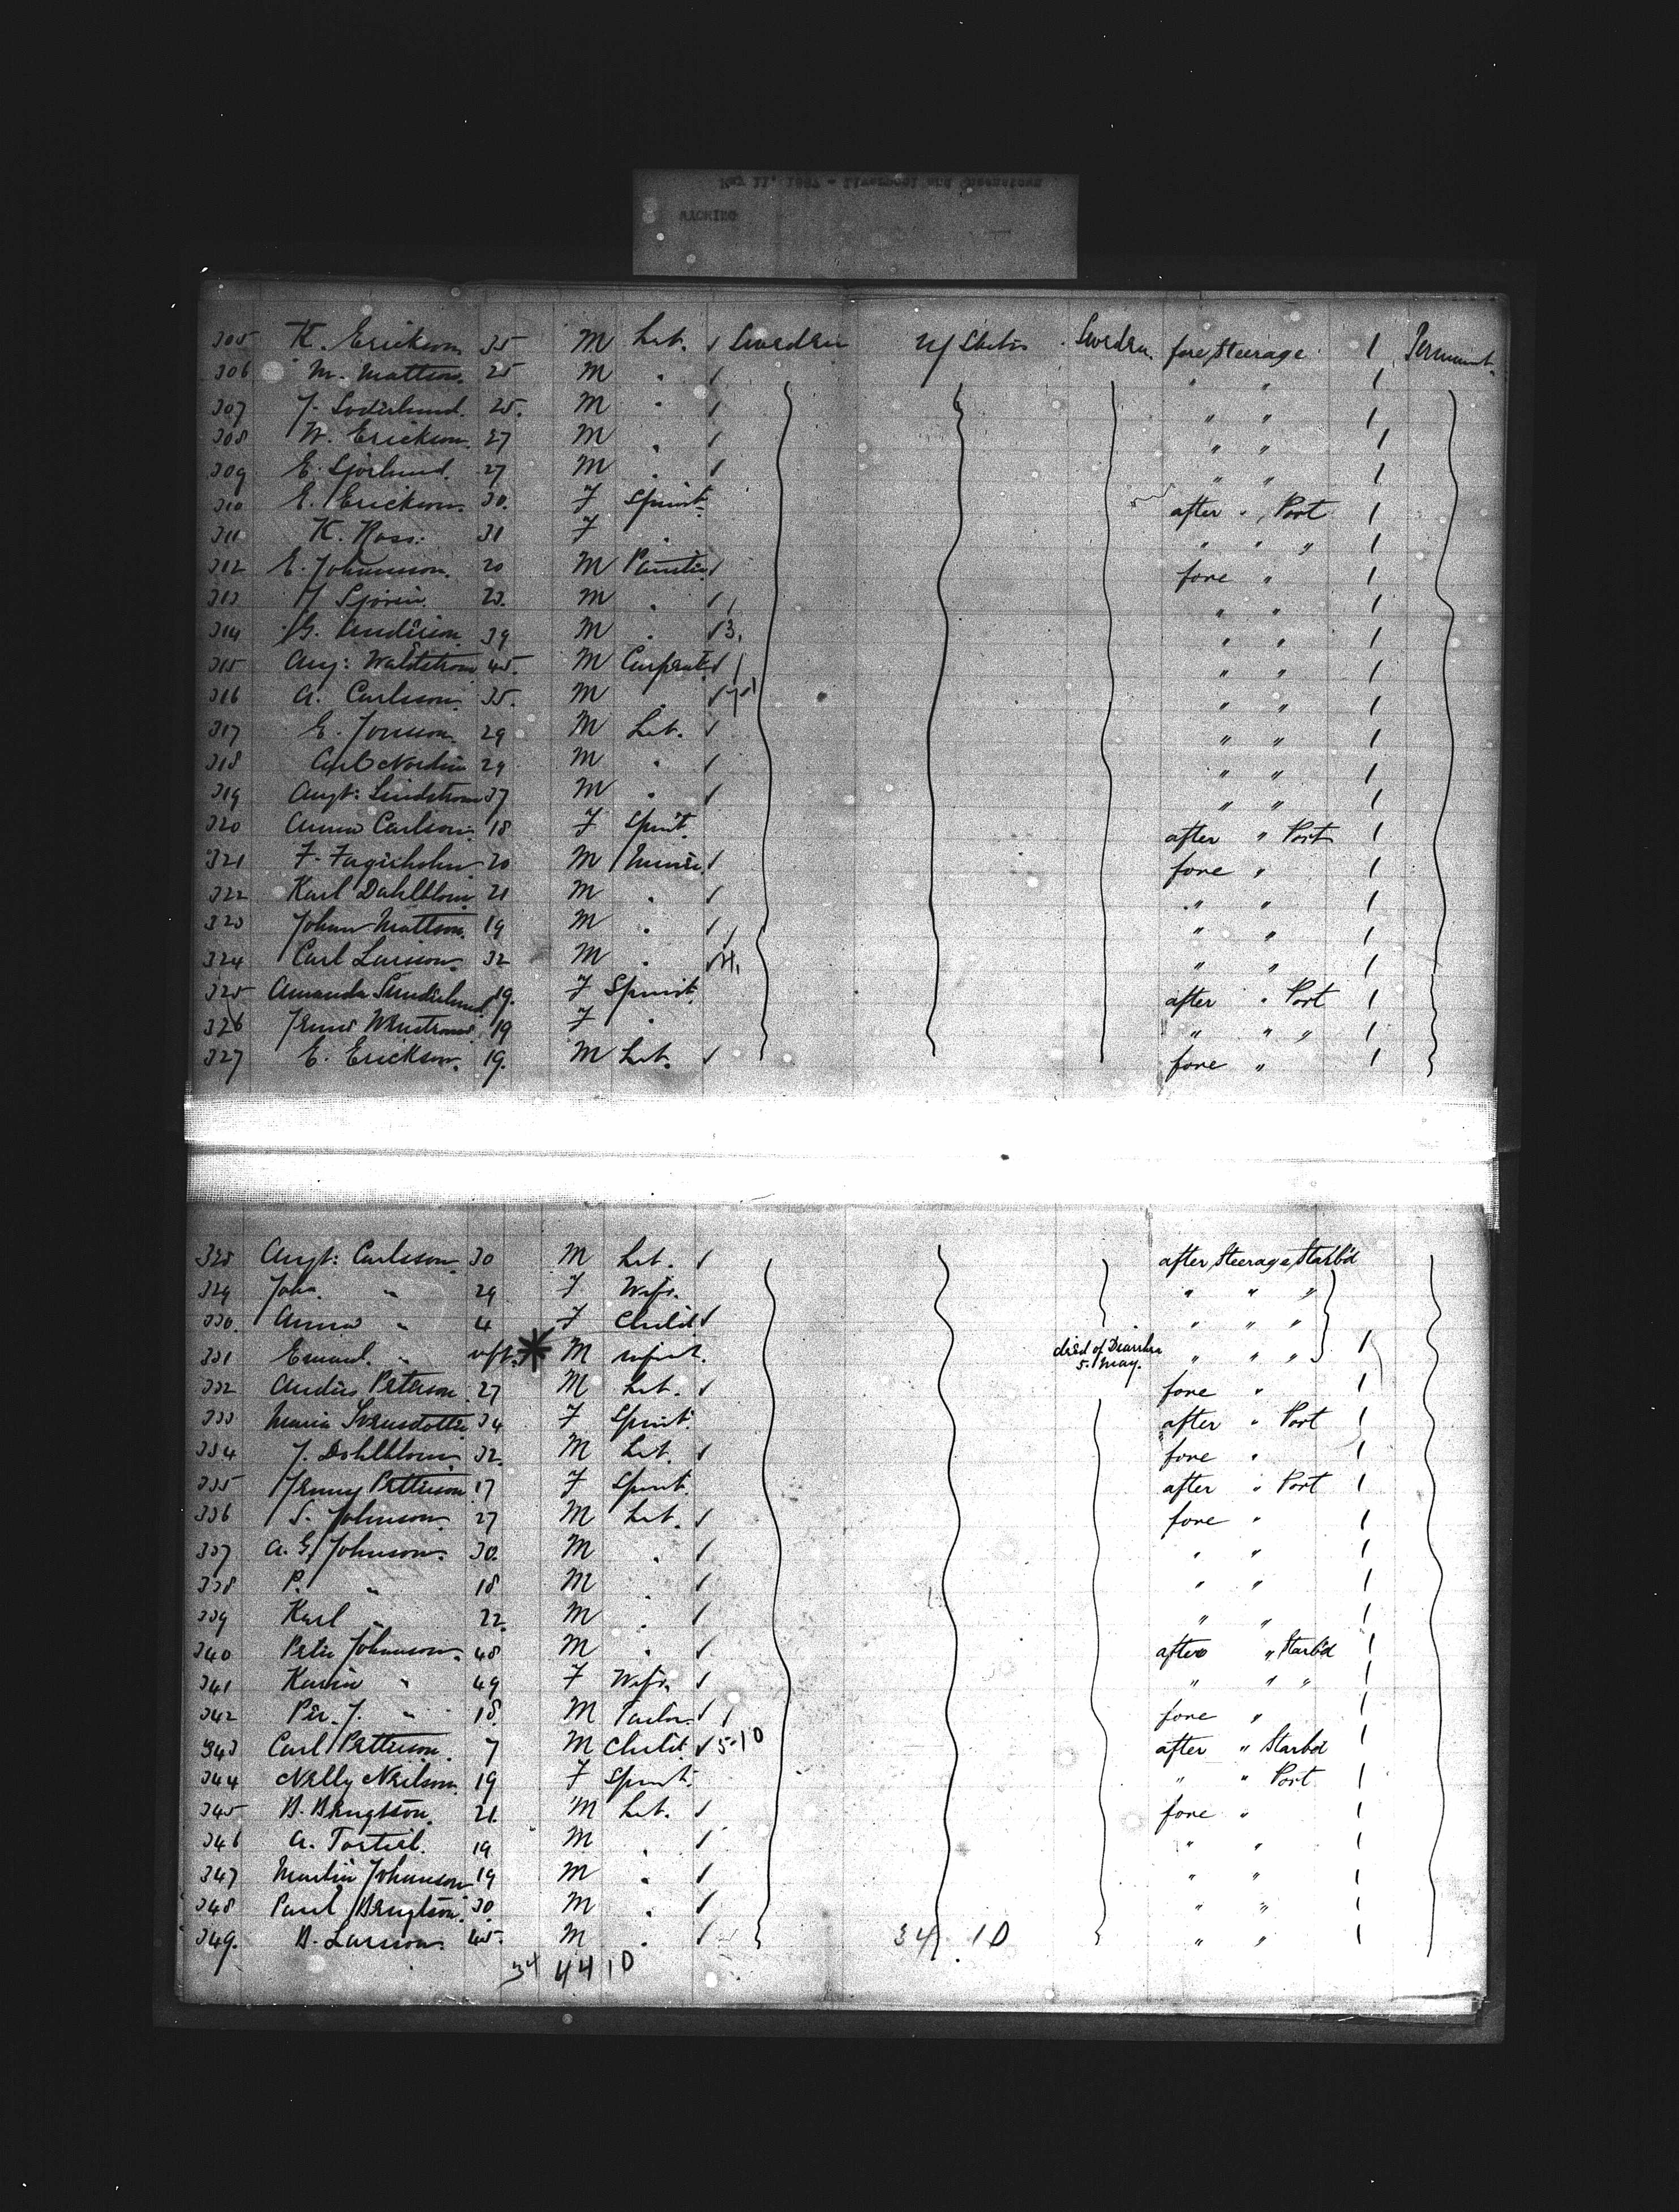 May 11, 1887 - Liverpool and Queenstown
WYOMING
305 K. Erickson 35 M Lab. / Sweden U/States Sweden fore Steerage 1 Permant.
306 M. Mattson. 25 M " / " " 1
307 J. Soderlund. 25. M " / " " 1
308 W. Erickson. 27 M " / " " 1
309 E. Sjorlund. 27 M " / " " 1
310 E. Erickson. 30. F Spinst. after " Port 1
311 K. Ross. 31 F " " " " 1
312 E. Johansson. 20 M Painter / fore " 1
313 J Sjorin. 23. M " / " " 1
314 G. Anderson 39 M " / 3. " " 1
315 Aug: Wahlstrom 45. M Carpenter / " " 1
316 A. Carlsson. 35. M " / " " 1
317 E. Jonsson. 29 M Lab. / " " 1
318 Carl Nordin 29 M " / " " 1
319 Augt: Lindstrom 37 M " / " " 1
320 Anna Carlson. 18 F Spinst. after " Port 1
321 F. Fagerholm 20 M Miner / fore " 1
322 Karl Dahlblom 21 M " / " " 1
323 Johan Mattson. 19 M " / " " 1
324 Carl Larsson. 32 M " / 4. " " 1
325 Amanda Sunderlund 19. F Spinst. after " Port 1
326 19 F " " " " 1
327 E. Erickson. 19. M Lab. / fore " 1
328 Augt: Carlsson 30 M Lab. / after Steerage Starb'd
329 Joha. " 29 F Wife. " " "
330. Anna " 4 F Child / " " "
331 " inft. * M infant. died of Diarrhea 5. May. " " " 1
332 Anders Peterson 27 M Lab. / fore " 1
333 Maria Svensdotter 34 F Spinst. after " Port 1
334 J. Dahlblom. 32. M Lab. / fore " 1
335 Jenny Petterson 17 F Spinst. after " Port 1
336 S. Johnson. 27 M Lab. / fore " 1
337 A. G. Johnson. 30. M " / " " 1
338 P. " 18 M " / " " 1
339 Karl " 22. M " / " " 1
340 Peter Johansson. 48 M " / after " Starb'd 1
341 Karin " 49 F Wife. / " " " 1
342 Per. J. " 18. M Tailor. / fore " 1
343 Carl Petterson. 7 M Child / 5-10 after " Starb'd 1
344 Nelly Neilson. 19 F Spinst. " " Port 1
345 B. Bengtson. 21. M Lab. / fore " 1
346 A. 19 M " / " " 1
347 Martin Johanson 19 M " / " " 1
348 Paul Bengtson. 30. M " / " " 1
349. B. Larsson. 45. M " / 34 10 " " 1
34 44 10